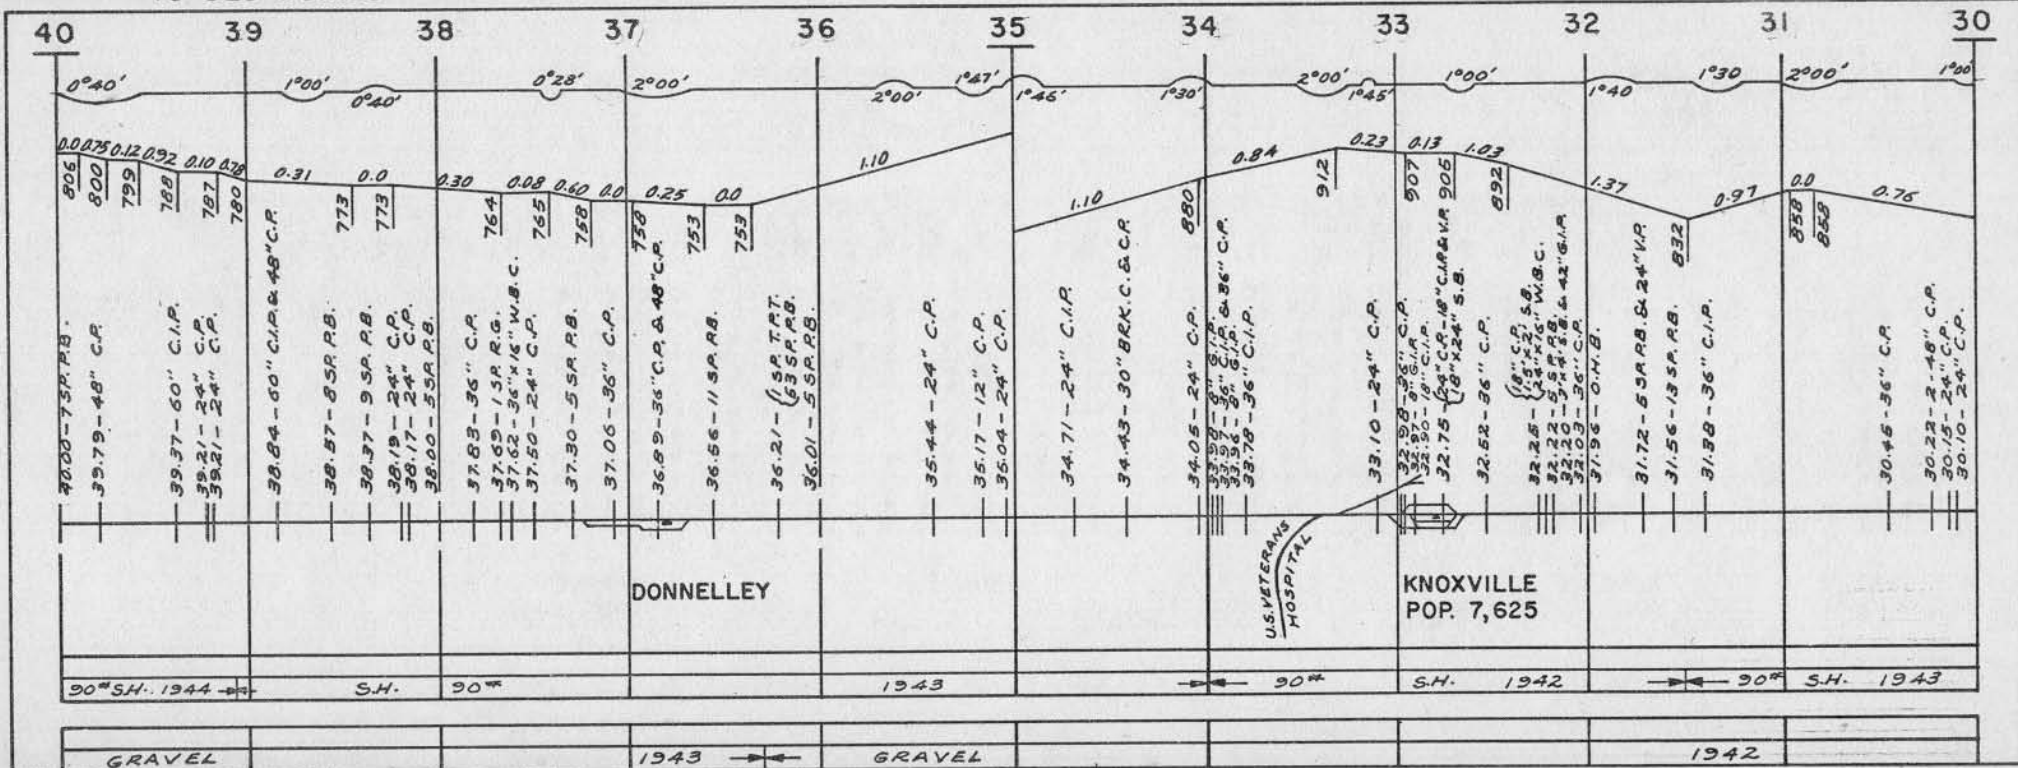 40 39 38 37 36 35 34 33 32 31 30
0°40' 1°00' 0°40' 0°28' 2°00' 2°00' 1°47' 1°46' 1°30' 2°00' 1°45' 1°00' 1°40 1°30 2°00' 1°00'
0.0 0.75 0.12 0.92 0.10 0.78 0.31 0.0 0.30 0.08 0.60 0.0 0.25 0.0 1.10 1.10 0.84 0.23 0.13 1.03 1.37 0.97 0.0 0.76
806 800 799 788 787 780 773 773 764 765 758 758 753 753 880 912 907 906 892 832 858 858
40.00-7 SP. P.B.
39.79-48" C.P.
39.37-60" C.I.P.
39.21-24" C.P.
39.21-24" C.P.
38.84-60" C.I.P. & 48" C.P.
38.57-8 SP. P.B.
38.37-9 SP. P.B.
38.19-24" C.P.
38.17-24" C.P.
38.00-5 SP. P.B.
37.83-36" C.P.
37.69-1 SP. R.G.
37.62-36"x16" W.B.C.
37.50-24" C.P.
37.30-5 SP. P.B.
37.06-36" C.P.
36.89-36" C.P. & 48" C.P.
36.56-11 SP. P.B.
36.21-(1 SP. T.P.T.
(63 SP. P.B.
36.01-5 SP. P.B.
35.44-24" C.P.
35.17-12" C.P.
35.04-24" C.P.
34.71-24" C.I.P.
34.43-30" BRK. C. & C.P.
34.05-24" C.P.
33.98-8" G.I.P.
33.97-36" C.I.P. & 36" C.P.
33.96-8" G.I.P.
33.78-36" C.I.P.
33.10-24" C.P.
32.98-36" C.P.
32.97-8" G.I.P.
32.90-18" C.I.P.
32.75-(24" C.P.-18" C.I.P. & V.P.
(18"x24" S.B.
32.52-36" C.P.
32.25-(18" C.P.
(18"x21" S.B.
(24"x16" W.B.C.
32.22-5 SP. P.B.
32.20-3'x4' S.B. & 42" G.I.P.
32.03-36" C.P.
31.96-O.H.B.
31.72-5 SP. P.B. & 24" V.P.
31.56-13 SP. P.B.
31.38-36" C.I.P.
30.45-36" C.P.
30.22-2-48" C.P.
30.15-24" C.P.
30.10-24" C.P.
U.S. VETERANS
HOSPITAL
DONNELLEY
KNOXVILLE
POP. 7,625
90# S.H. 1944 S.H. 90# 1943 90# S.H. 1942 90# S.H. 1943
GRAVEL 1943 GRAVEL 1942